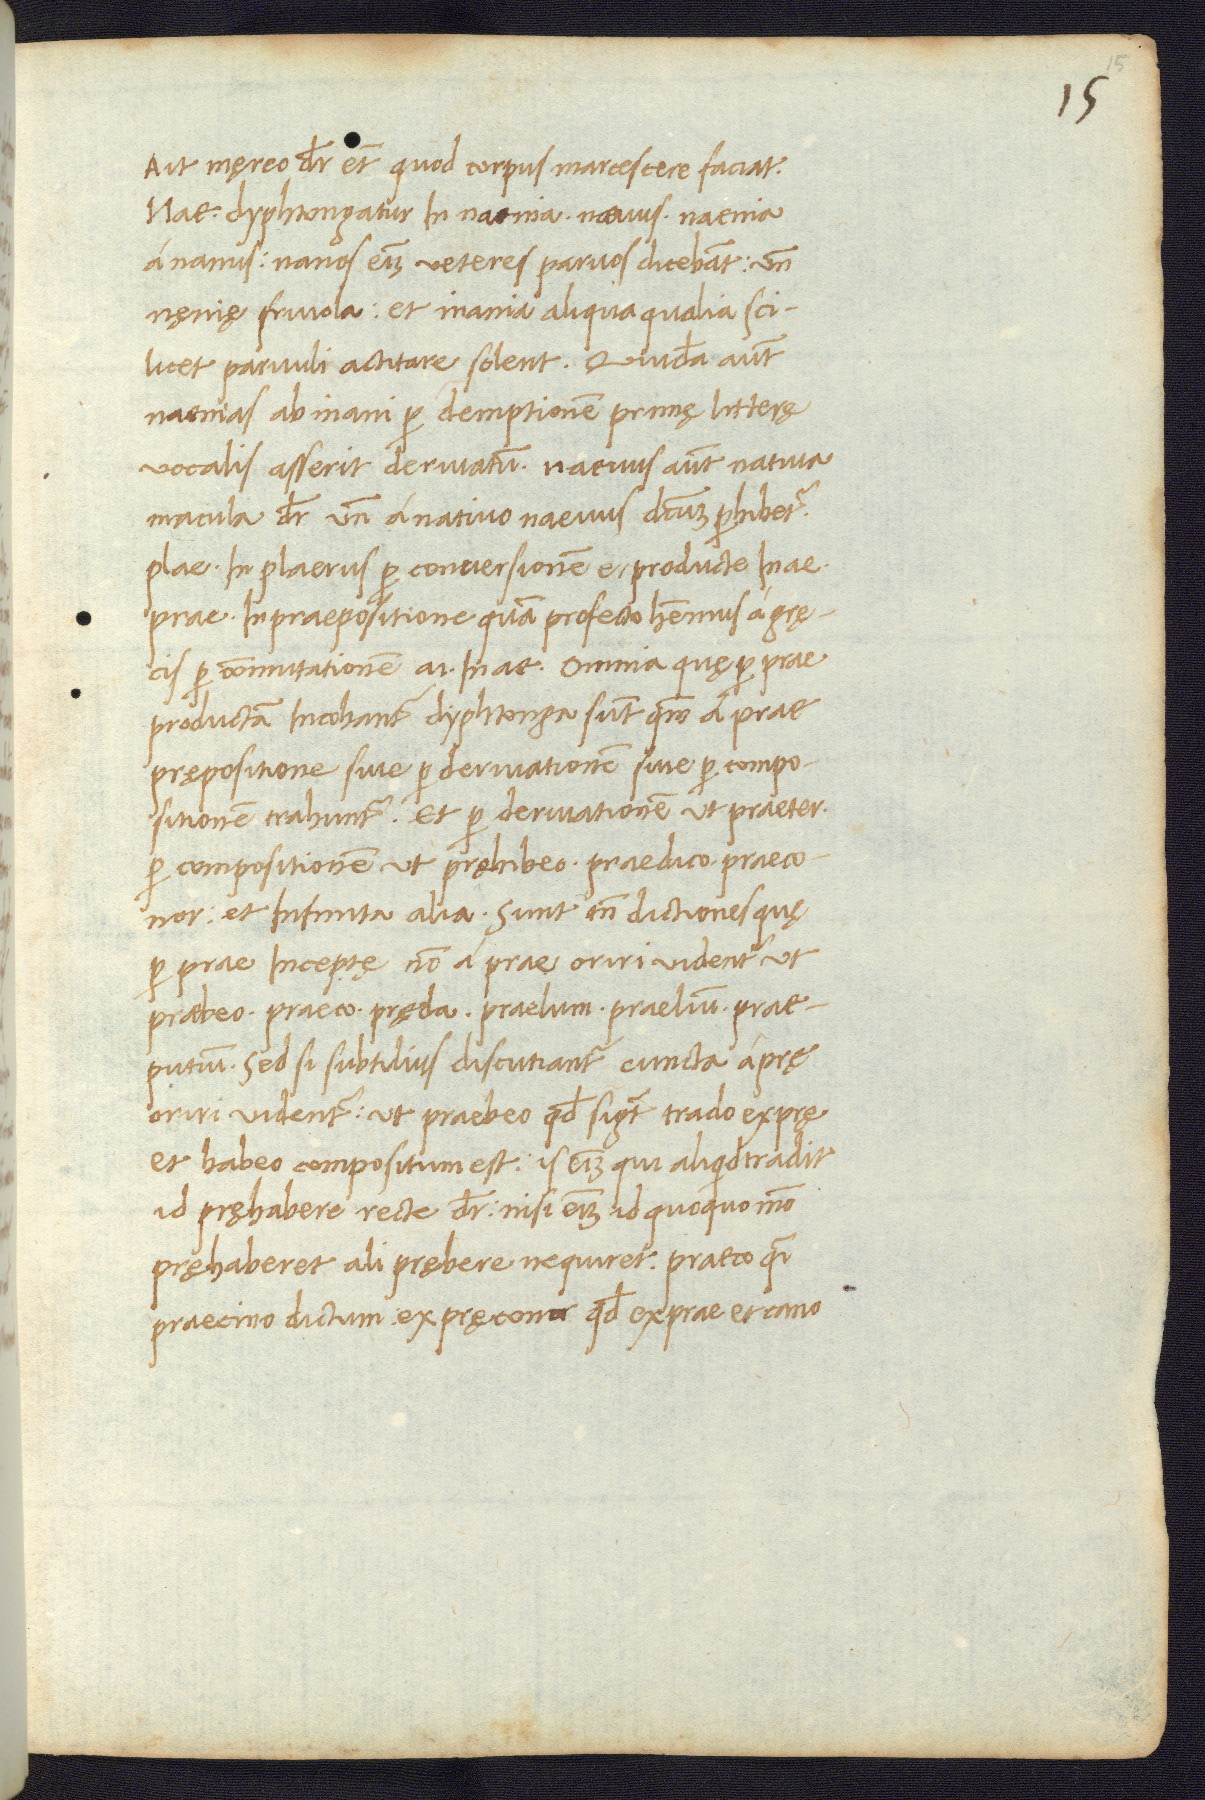 15
15
Ait męreo dr̄ et̄ quod corpus marcescere faciat.
Nae. dyphtongatur In naenia. naevus. naenia
á nanus: nanos eīz veteres parvos dicebāt: vn̄
nęnię frivola: et inania aliqua qualia sci-
licet parvuli actitare solent. Quidā aūt
naenias ab inani ꝑ demptionē primę litterę
vocalis asserit derivatū. naevus aūt nativa
macula dr̄ vn̄ á nativo naevus dcūz ꝑhibetr̄.
plae. In plaerus ꝑ conversionē e, producte In ae.
prae. In praepositione quā profecto hēmus á grę-
cis ꝑ com̄utationē ai. In ae. Omnia quę ꝑ prae
productā Incohantr̄ dyphtonga sūt qm̄ á prae
prępositione sive ꝑ derivationē sive ꝑ compo-
sitionē trahuntr̄. Et ꝑ derivationē ut praeter.
ꝑ compositionē ut pręhibeo. praedico. praeco-
nor: et Infinita alia. Sunt tn̄ dictiones quę
ꝑ prae Inceptę nō á prae oriri videntr̄ ut
præbeo. praeco. pręda. praelum. praeliū. prae-
putiū. Sed si subtilius discutiantr̄ cuncta á prę
oriri videntr̄: ut praebeo qđ sigt̄ trado ex prę
et habeo compositum est: is eīz qui aliqđ tradit
id pręhabere recte dr̄: nisi eīz id quoquo mō
pręhaberet alii prębere nequiret. praeco qī
praecino dictum ex pręconor qđ ex prae et cano